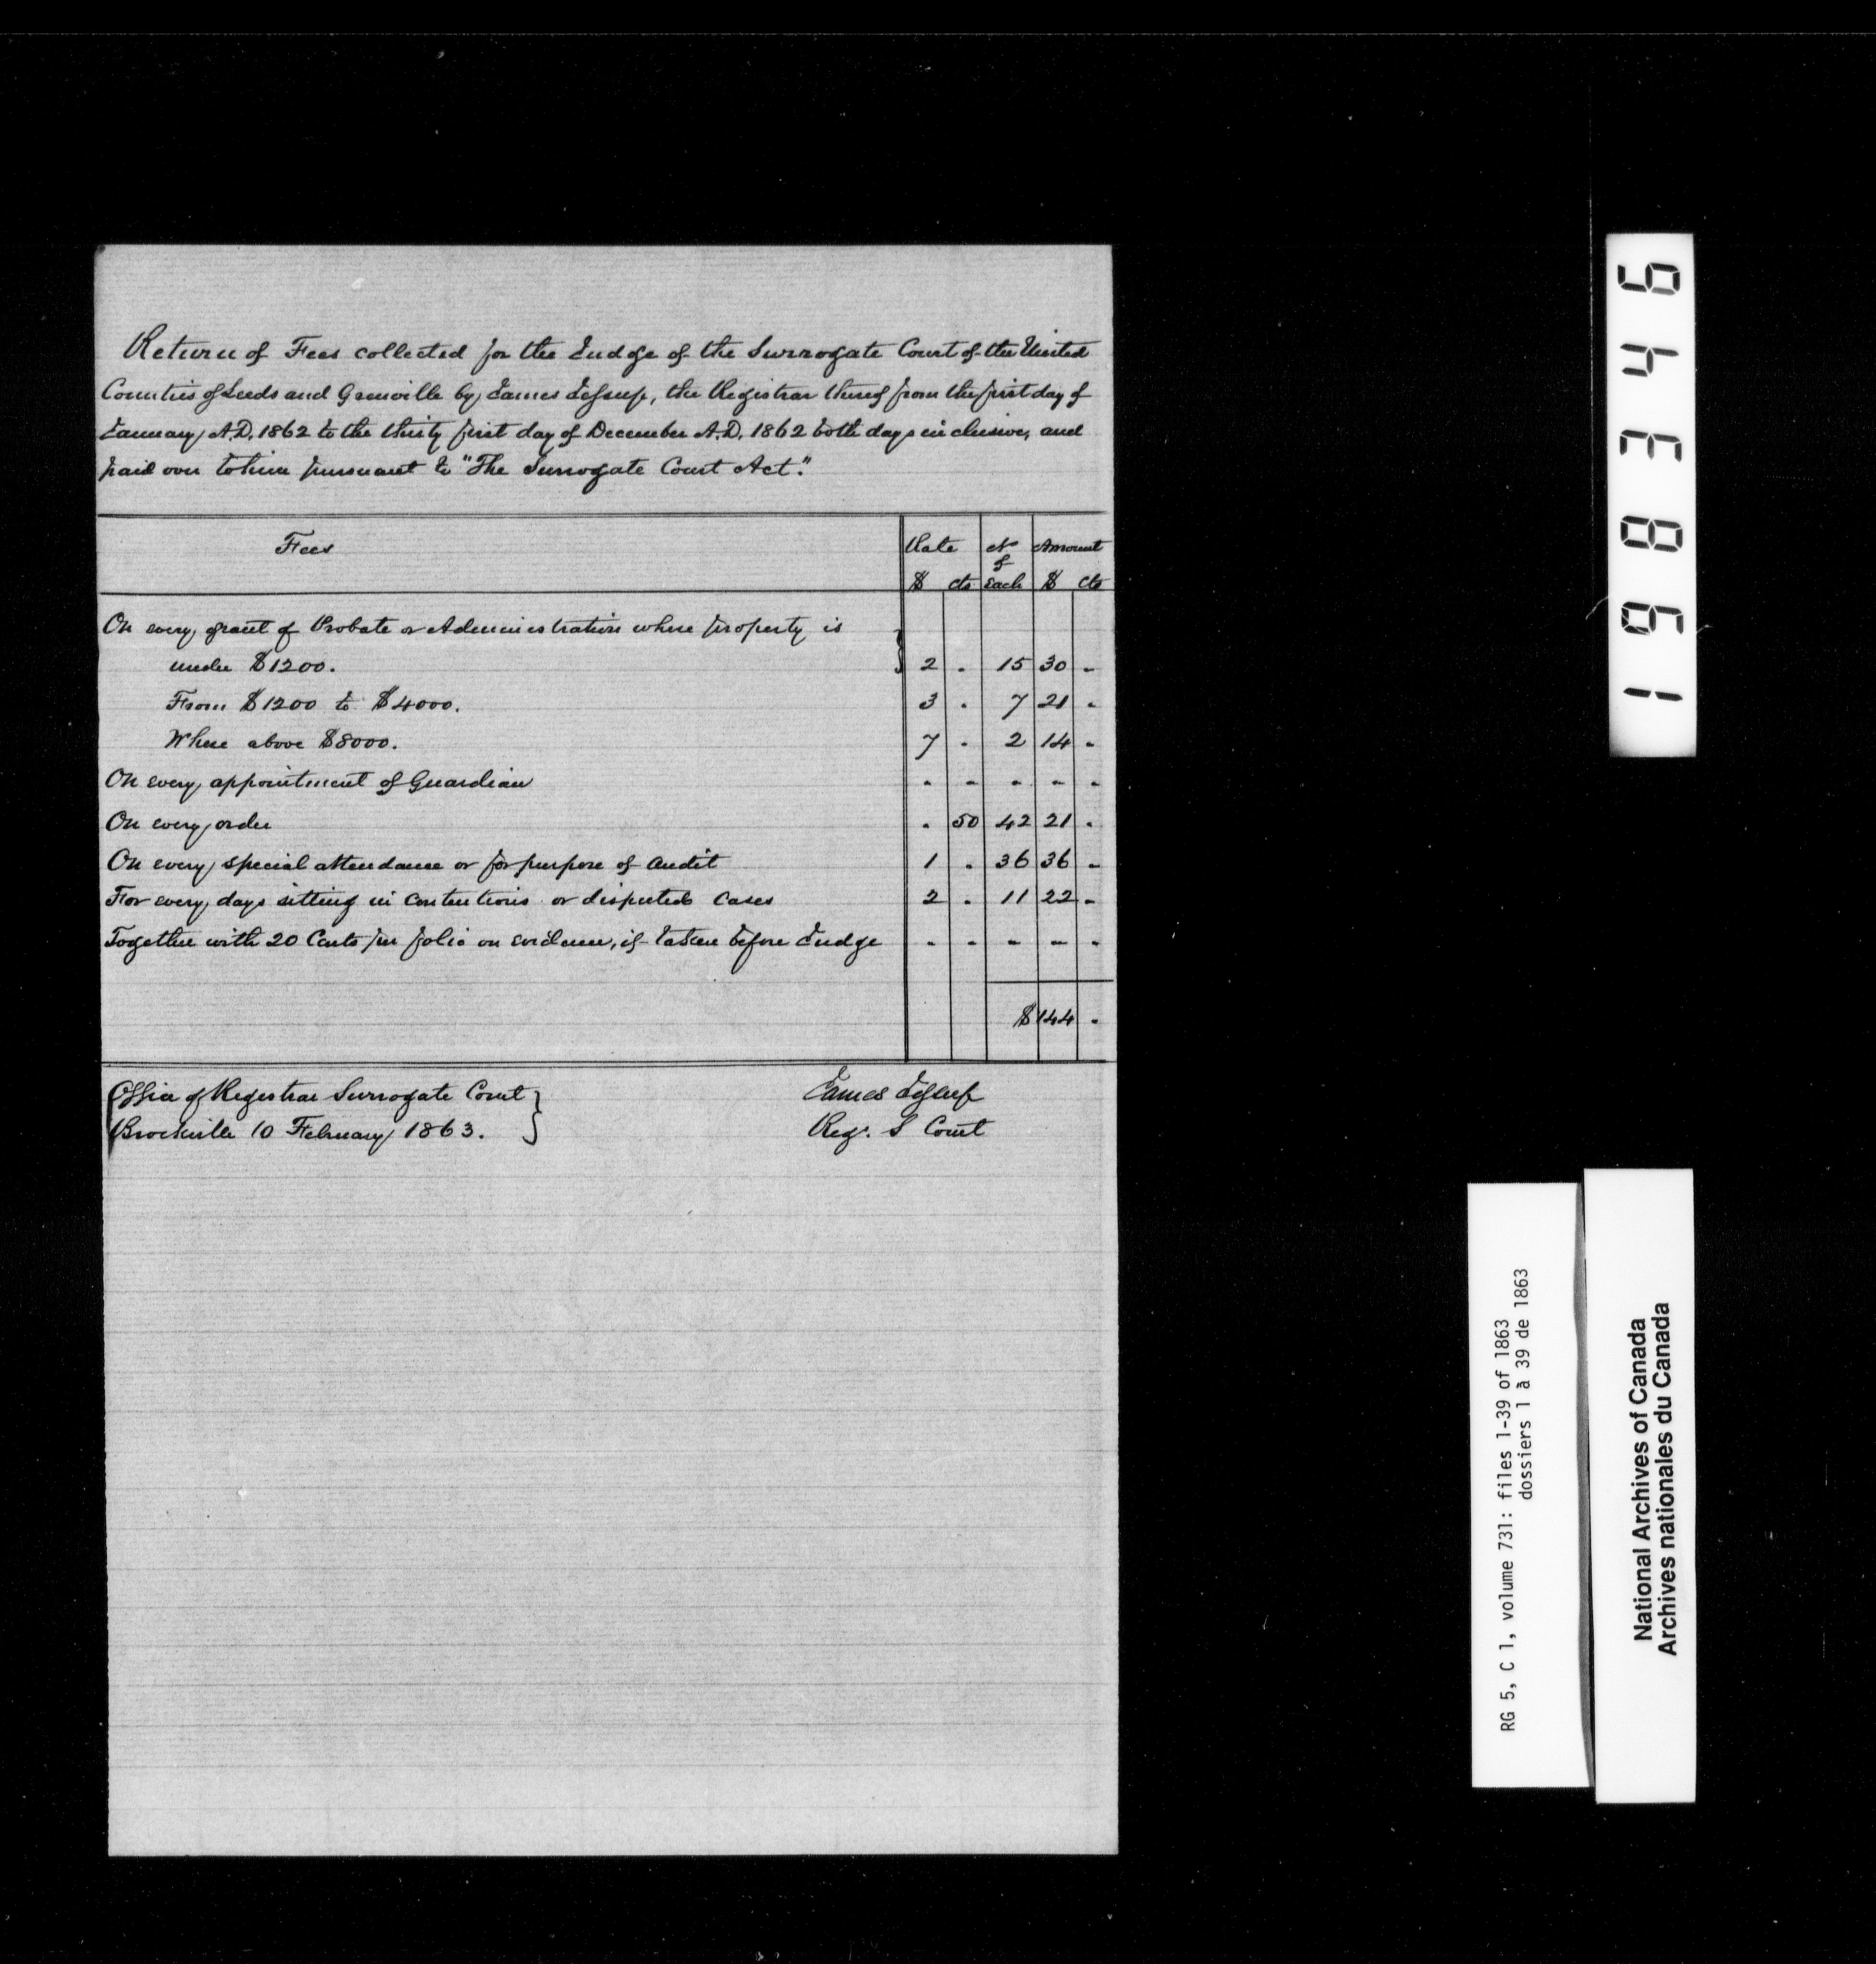 Return of Fees collected for the Judge of the Surrogate Court of the United
Counties of Leeds and Grenville by James Jessup, the Registrar thereof from the first day of
January, A.D. 1862 to the thirty first day of December A.D. 1862 both days inclusive, and
paid over to him pursuant to "The Surrogate Court Act."
Fees Rate No of Each Amount
$ cts $ cts
On every grant of Probate or Administration where property is
under $1200. 2 . 15 30 -
From $1200 to $4000. 3 . 7 21 -
Where above $8000. 7 . 2 14 -
On every appointment of Guardian - - - - -
On every order . 50 42 21 .
On every special attendance or for purpose of Audit 1 . 36 36 -
For every days sitting in Contentious or disputed Cases 2 . 11 22 -
Together with 20 Cents per folio on evidence, if taken before Judge - - - - -
$144 -
Office of Registrar Surrogate Court
Brockville 10 February 1863.
James Jessup
Regr. S Court
198346
RG 5, C 1, volume 731: files 1-39 of 1863
dossiers 1 à 39 de 1863
National Archives of Canada
Archives nationales du Canada